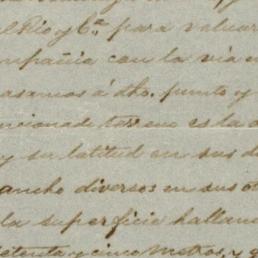 el Rio y Cª para valuar
ompañia con la via
asamos á dho. punto y
ncionado terreno es la
y su latitud en sus
ancho diversos en sus
la superficie hallan
etenta y cinco metros, y